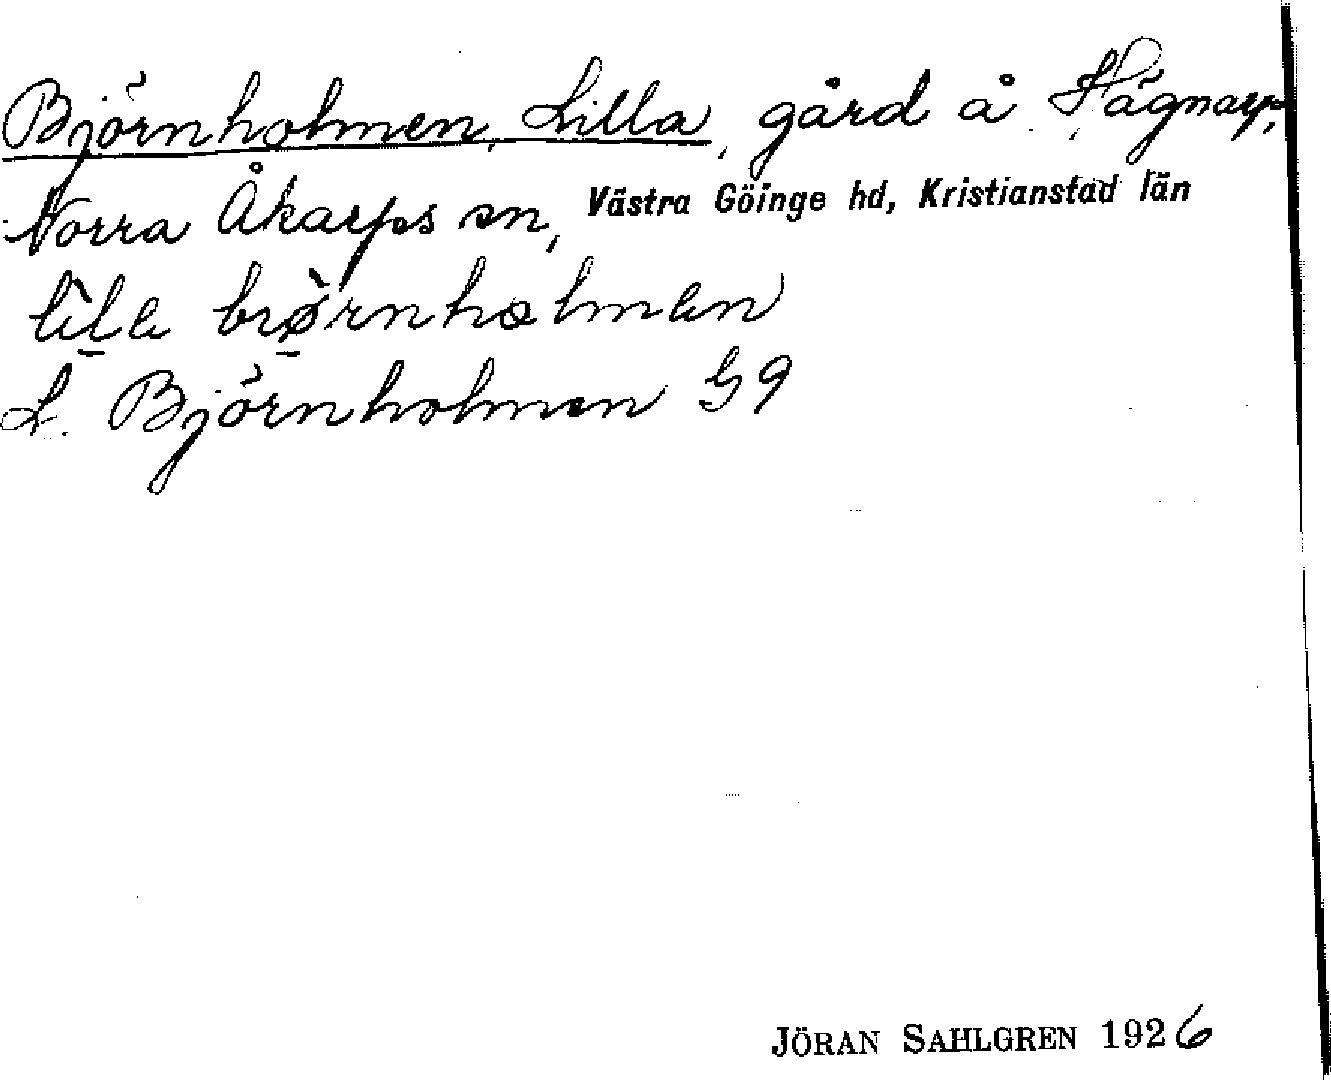 Björnholmen, Lilla, gård å Hägnarp,
Norra Åkarps sn, Västra Göinge hd, Kristianstad län
L. Björnholmen G9
JÖRAN SAHLGREN 1926